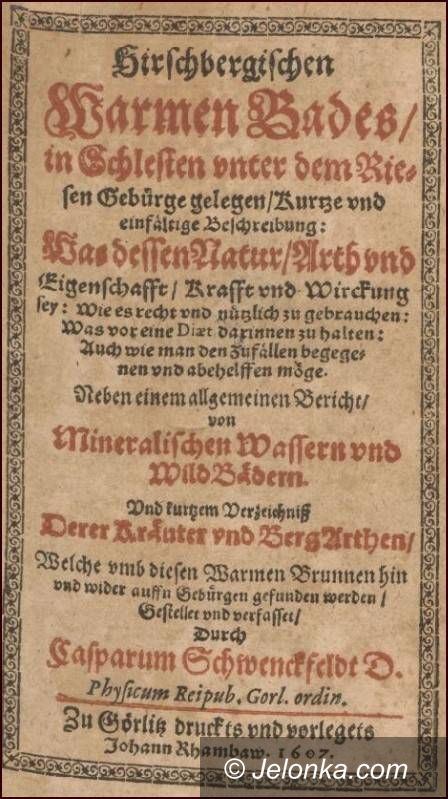 Hirschbergischen
Warmen Bades/
in Schlesien vnter dem Rie-
sen Gebürge gelegen/Kurtze vnd
einfältige Beschreibung:
Was dessen Natur/Arth vnd
Eigenschafft/ Krafft vnd Wirckung
sey: Wie es recht vnd nützlich zu gebrauchen:
Was vor eine Diæt darinnen zu halten:
Auch wie man den Zufällen begege-
nen vnd abehelffen möge.
Neben einem allgemeinen Bericht/
von
Mineralischen Wassern vnd
Wild Bädern.
Vnd kurtzem Verzeichniß
Derer Kräuter vnd Berg Arthen/
Welche vmb diesen Warmen Brunnen hin
vnd wider auffn Gebürgen gefunden werden/
Gestellet vnd verfasset/
Durch
Casparum Schwenckfeldt D.
Physicum Reipub. Gorl. ordin.
Zu Görlitz druckts vnd vorlegets
Johann Rhambaw. 1607.
© Jelonka.com